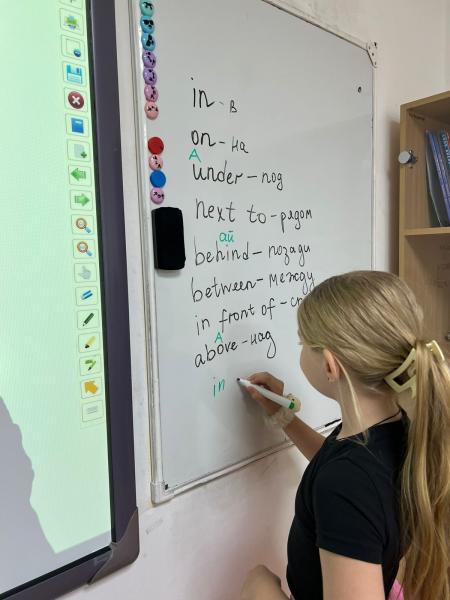 in - в
on - на
А
under - под
next to - рядом
ай
behind - позади
between - между
in front of -
А
above - над
in